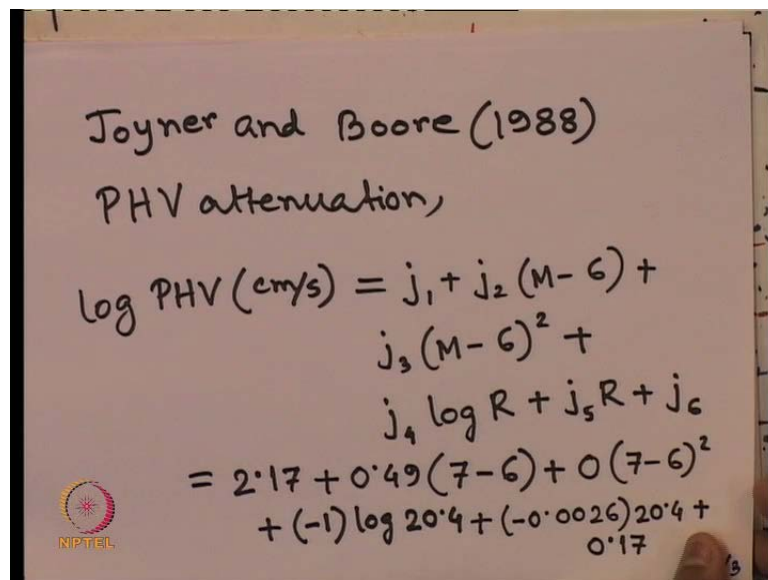 Joyner and Boore (1988)
PHV attenuation,
log PHV (cm/s) = j₁ + j₂ (M - 6) +
j₃ (M - 6)² +
j₄ log R + j₅ R + j₆
= 2·17 + 0·49 (7-6) + 0 (7-6)²
+ (-1) log 20·4 + (-0·0026) 20·4 +
0·17
NPTEL